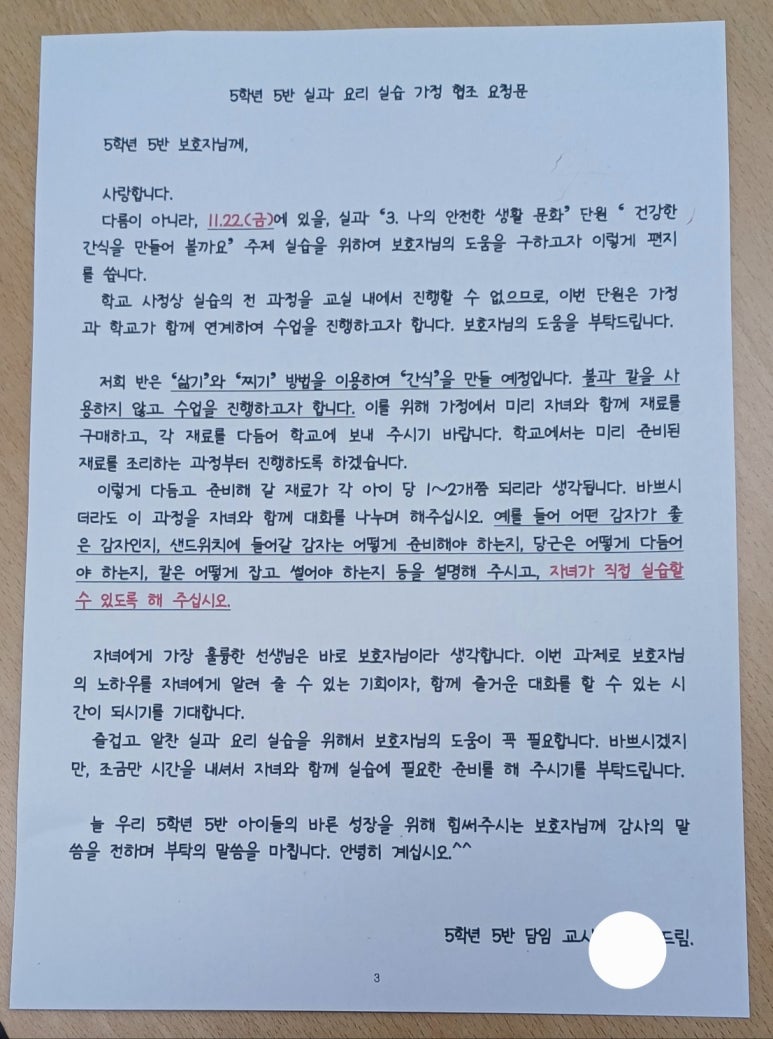 5학년 5반 실과 요리 실습 가정 협조 요청문
5학년 5반 보호자님께,
사랑합니다.
다름이 아니라, 11.22.(금)에 있을, 실과 ‘3. 나의 안전한 생활 문화’ 단원 ‘ 건강한
간식을 만들어 볼까요’ 주제 실습을 위하여 보호자님의 도움을 구하고자 이렇게 편지
를 씁니다.
학교 사정상 실습의 전 과정을 교실 내에서 진행할 수 없으므로, 이번 단원은 가정
과 학교가 함께 연계하여 수업을 진행하고자 합니다. 보호자님의 도움을 부탁드립니다.
저희 반은 ‘삶기’와 ‘찌기’ 방법을 이용하여 ‘간식’을 만들 예정입니다. 불과 칼을 사
용하지 않고 수업을 진행하고자 합니다. 이를 위해 가정에서 미리 자녀와 함께 재료를
구매하고, 각 재료를 다듬어 학교에 보내 주시기 바랍니다. 학교에서는 미리 준비된
재료를 조리하는 과정부터 진행하도록 하겠습니다.
이렇게 다듬고 준비해 갈 재료가 각 아이 당 1~2개쯤 되리라 생각됩니다. 바쁘시
더라도 이 과정을 자녀와 함께 대화를 나누며 해주십시오. 예를 들어 어떤 감자가 좋
은 감자인지, 샌드위치에 들어갈 감자는 어떻게 준비해야 하는지, 당근은 어떻게 다듬어
야 하는지, 칼은 어떻게 잡고 썰어야 하는지 등을 설명해 주시고, 자녀가 직접 실습할
수 있도록 해 주십시오.
자녀에게 가장 훌륭한 선생님은 바로 보호자님이라 생각합니다. 이번 과제로 보호자님
의 노하우를 자녀에게 알려 줄 수 있는 기회이자, 함께 즐거운 대화를 할 수 있는 시
간이 되시기를 기대합니다.
즐겁고 알찬 실과 요리 실습을 위해서 보호자님의 도움이 꼭 필요합니다. 바쁘시겠지
만, 조금만 시간을 내셔서 자녀와 함께 실습에 필요한 준비를 해 주시기를 부탁드립니다.
늘 우리 5학년 5반 아이들의 바른 성장을 위해 힘써주시는 보호자님께 감사의 말
씀을 전하며 부탁의 말씀을 마칩니다. 안녕히 계십시오.^^
5학년 5반 담임 교사 드림.
3